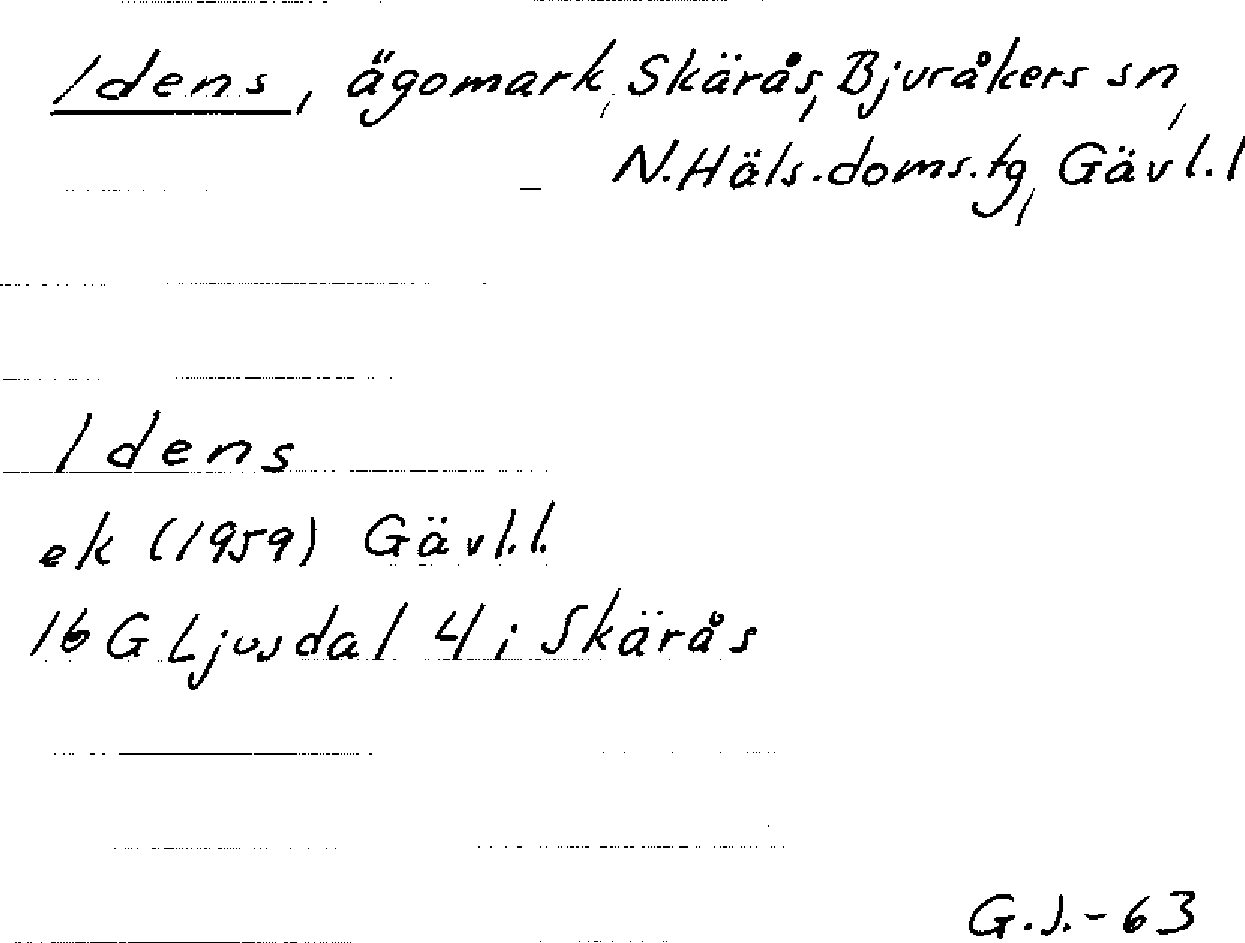 Idens, ägomark, Skärås, Bjuråkers sn,
N.Häls.doms.tg, Gävl.l
Idens
ek (1959) Gävl.l.
16 G Ljusdal 4 i Skärås
G.J.-63